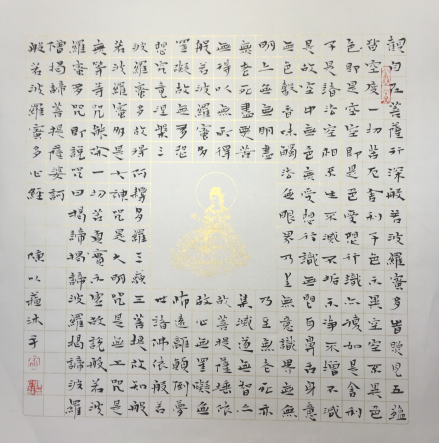 觀自在菩薩行深般若波羅蜜多時照見五蘊
皆空度一切苦厄舍利子色不異空空不異色
色即是空空即是色受想行識亦復如是舍利
子是諸法空相不生不滅不垢不淨不增不減
是故空中無色無受想行識無眼耳鼻舌身意
無色聲香味觸法無眼界乃至無意識界無無
明亦無無明盡乃至無老死亦
無老死盡無苦集滅道無智亦
無得以無所得故菩提薩埵依
般若波羅蜜多故心無罣礙無
罣礙故無有恐怖遠離顛倒夢
想究竟涅槃三世諸佛依般若
波羅蜜多故得阿耨多羅三藐三菩提故知般
若波羅蜜多是大神咒是大明咒是無上咒是
無等等咒能除一切苦真實不虛故說般若波
羅蜜多咒即說咒曰揭諦揭諦波羅揭諦波羅
僧揭諦菩提薩婆訶
般若波羅蜜多心經 陳以沐手